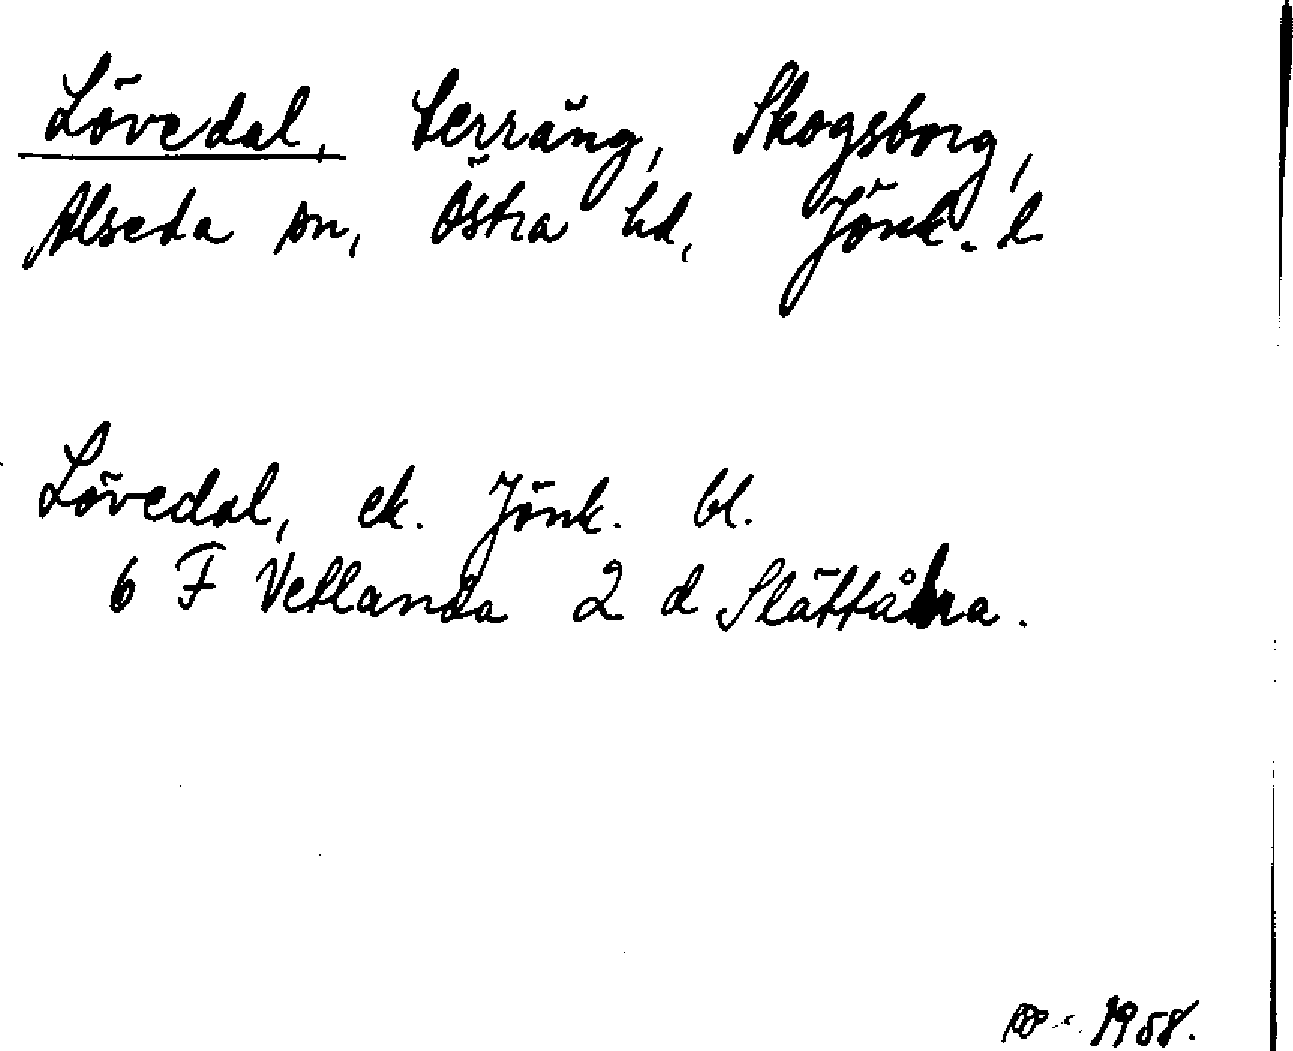 Lövedal, terräng, Skogsborg,
Alseda sn, Östra hd, Jönk. l
Lövedal, ek. Jönk. bl.
6 F Vetlanda 2 d Slättåkra.
1958.